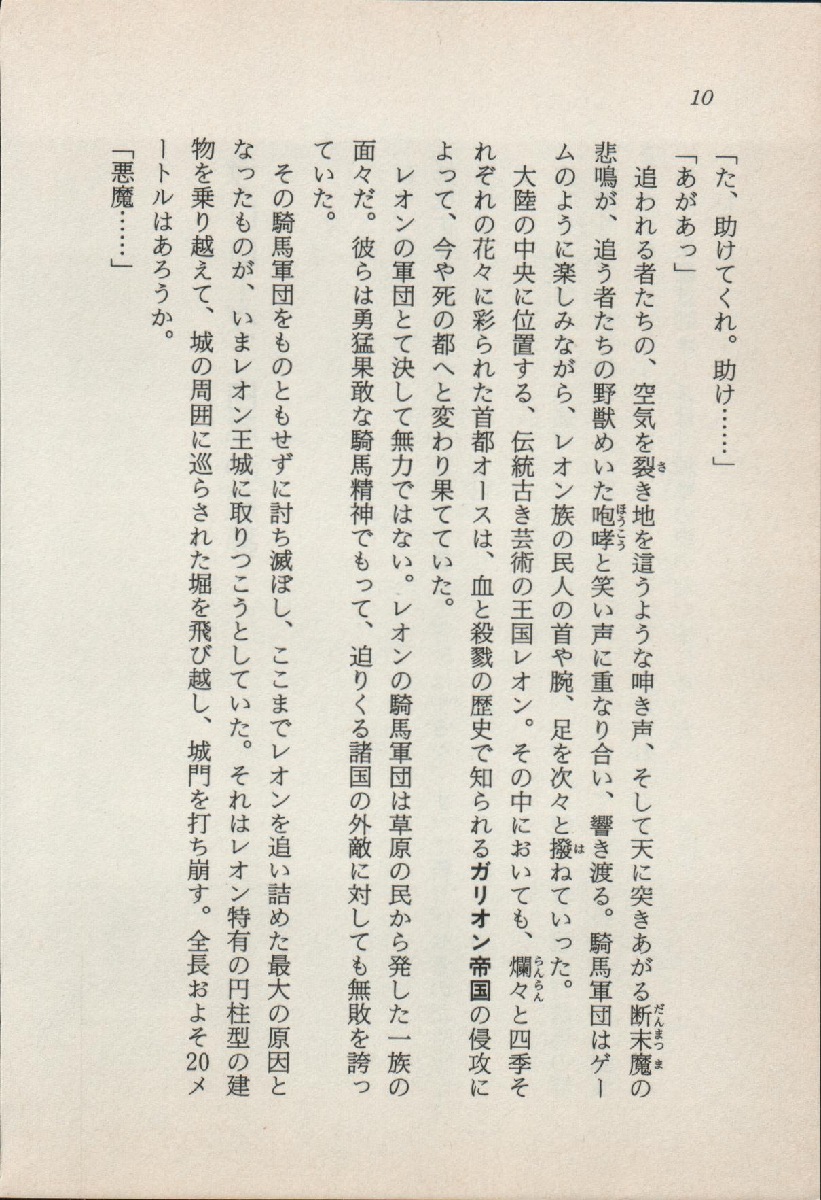 10
「た、助けてくれ。助け……」
「あがあっ」
　追われる者たちの、空気を裂き地を這うような呻き声、そして天に突きあがる断末魔の
悲鳴が、追う者たちの野獣めいた咆哮と笑い声に重なり合い、響き渡る。騎馬軍団はゲー
ムのように楽しみながら、レオン族の民人の首や腕、足を次々と撥ねていった。
　大陸の中央に位置する、伝統古き芸術の王国レオン。その中においても、爛々と四季そ
れぞれの花々に彩られた首都オースは、血と殺戮の歴史で知られるガリオン帝国の侵攻に
よって、今や死の都へと変わり果てていた。
　レオンの軍団とて決して無力ではない。レオンの騎馬軍団は草原の民から発した一族の
面々だ。彼らは勇猛果敢な騎馬精神でもって、迫りくる諸国の外敵に対しても無敗を誇っ
ていた。
　その騎馬軍団をものともせずに討ち滅ぼし、ここまでレオンを追い詰めた最大の原因と
なったものが、いまレオン王城に取りつこうとしていた。それはレオン特有の円柱型の建
物を乗り越えて、城の周囲に巡らされた堀を飛び越し、城門を打ち崩す。全長およそ20メ
ートルはあろうか。
「悪魔……」